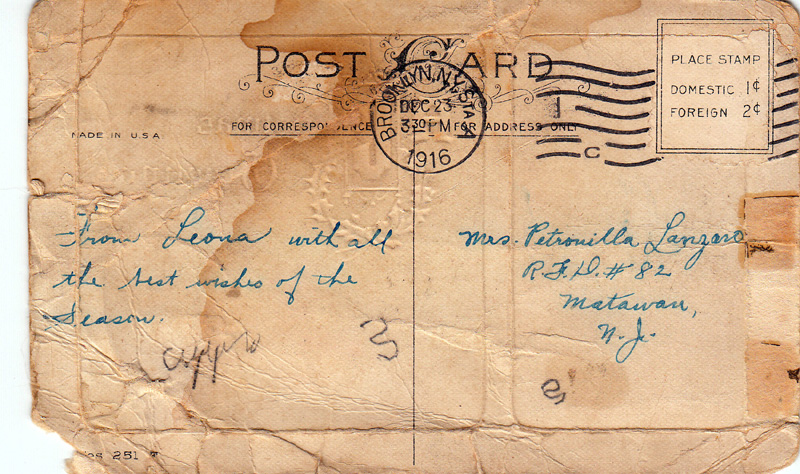 POST CARD
PLACE STAMP
DOMESTIC 1¢
FOREIGN 2¢
BROOKLYN, N.Y. STA A
DEC 23
3 30 PM
1916
C
MADE IN U.S.A
FOR CORRESPONDENCE
FOR ADDRESS ONLY
From Leona with all
the best wishes of the
Season.
Mrs. Petronilla Lanzaro
R.F.D. # 82
Matawan,
N.J.
251